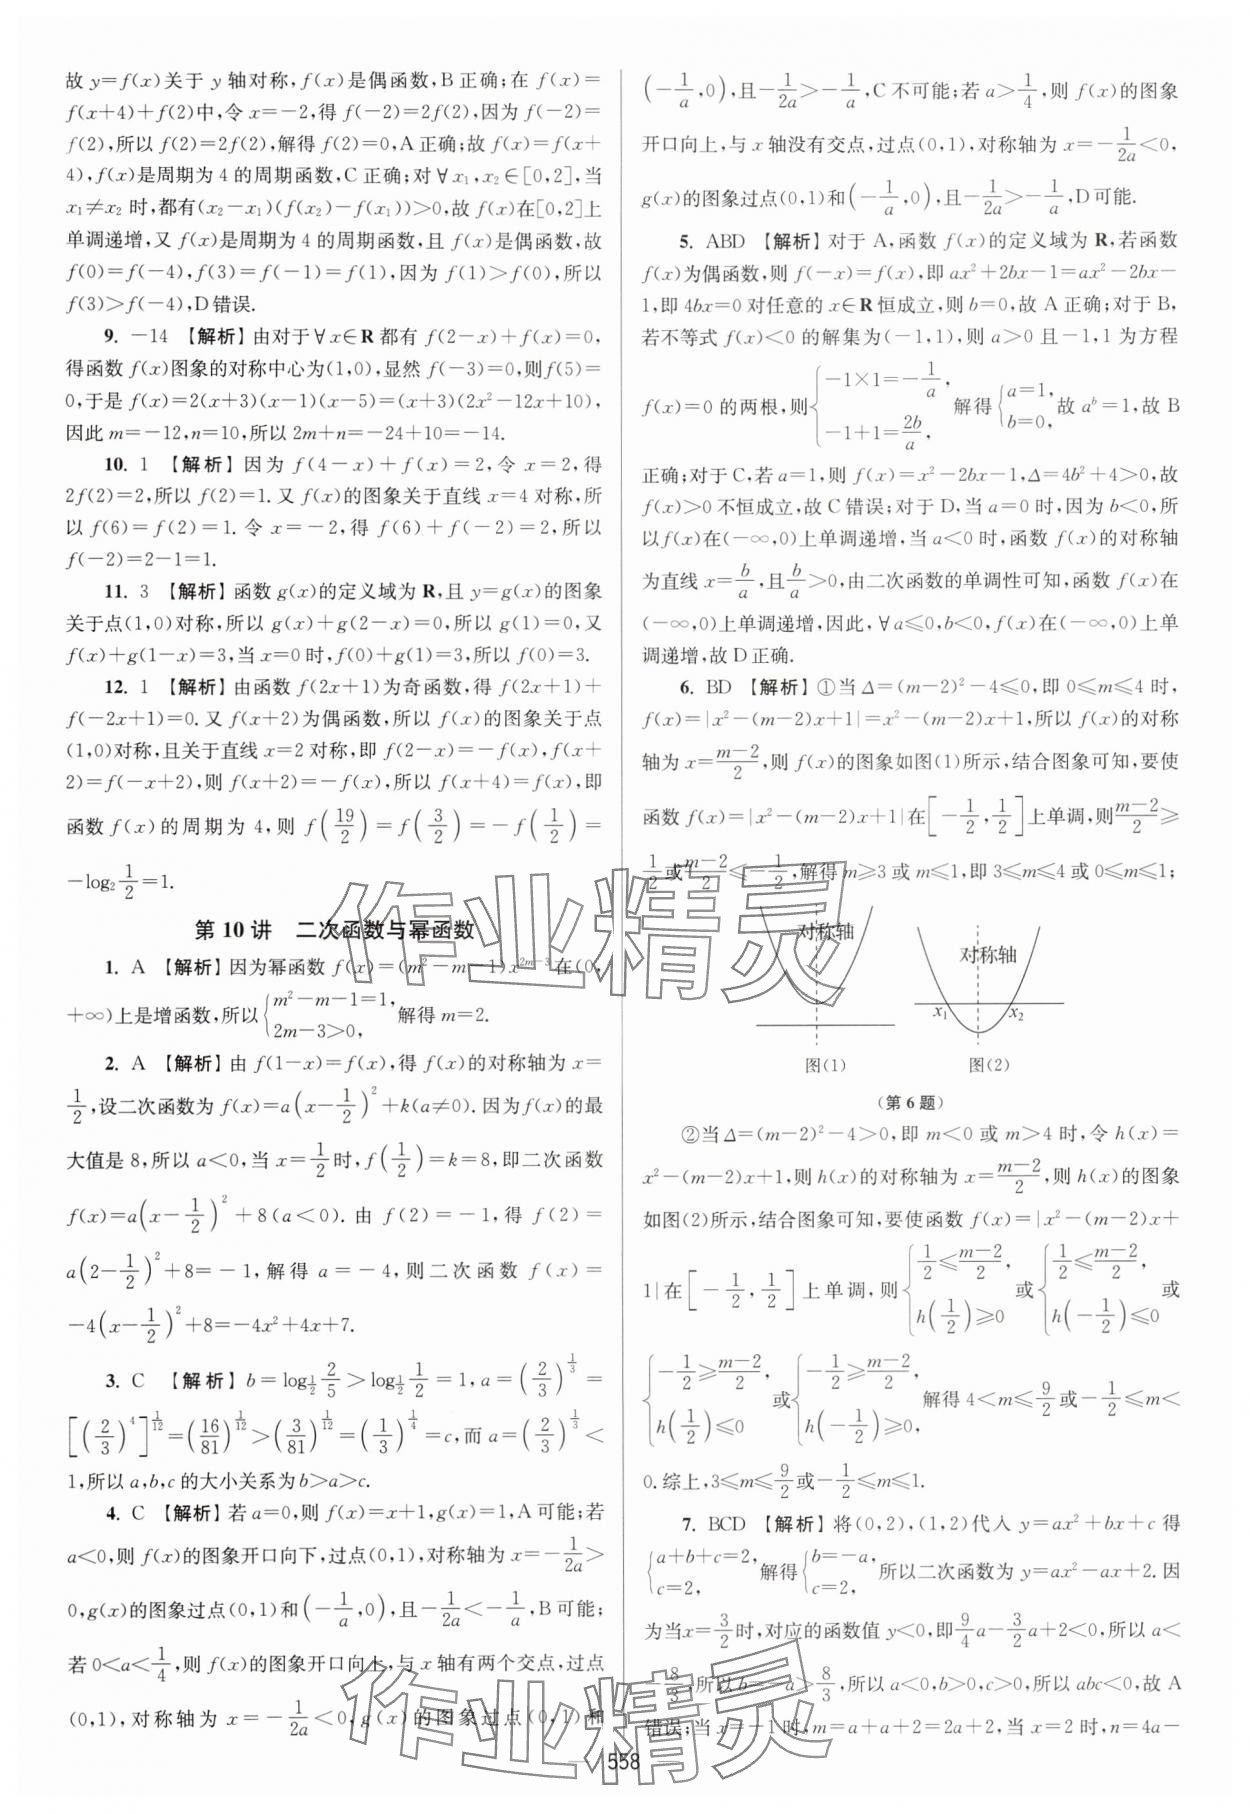 故 y=f(x)关于 y 轴对称,f(x)是偶函数,B正确;在 f(x)=
f(x+4)+f(2)中,令 x=-2,得 f(-2)=2f(2),因为 f(-2)=
f(2),所以 f(2)=2f(2),解得 f(2)=0,A正确;故 f(x)=f(x+
4),f(x)是周期为 4 的周期函数,C正确;对∀x₁,x₂∈[0,2],当
x₁≠x₂ 时,都有(x₂-x₁)(f(x₂)-f(x₁))>0,故 f(x)在[0,2]上
单调递增,又 f(x)是周期为 4 的周期函数,且 f(x)是偶函数,故
f(0)=f(-4),f(3)=f(-1)=f(1),因为 f(1)>f(0),所以
f(3)>f(-4),D错误.
9. -14 【解析】由对于∀x∈R 都有 f(2-x)+f(x)=0,
得函数 f(x)图象的对称中心为(1,0),显然 f(-3)=0,则f(5)=
0,于是 f(x)=2(x+3)(x-1)(x-5)=(x+3)(2x²-12x+10),
因此 m=-12,n=10,所以 2m+n=-24+10=-14.
10. 1 【解析】因为 f(4-x)+f(x)=2,令 x=2,得
2f(2)=2,所以 f(2)=1.又 f(x)的图象关于直线 x=4 对称,所
以 f(6)=f(2)=1.令 x=-2,得 f(6)+f(-2)=2,所以
f(-2)=2-1=1.
11. 3 【解析】函数 g(x)的定义域为 R,且 y=g(x)的图象
关于点(1,0)对称,所以 g(x)+g(2-x)=0,所以 g(1)=0,又
f(x)+g(1-x)=3,当 x=0 时,f(0)+g(1)=3,所以 f(0)=3.
12. 1 【解析】由函数 f(2x+1)为奇函数,得 f(2x+1)+
f(-2x+1)=0.又 f(x+2)为偶函数,所以 f(x)的图象关于点
(1,0)对称,且关于直线 x=2 对称,即 f(2-x)=-f(x),f(x+
2)=f(-x+2),则 f(x+2)=-f(x),所以 f(x+4)=f(x),即
函数 f(x)的周期为 4,则 f(19/2)=f(3/2)=-f(1/2)=
-log₂ 1/2=1.
第 10 讲 二次函数与幂函数
1. A 【解析】因为幂函数 f(x)=(m²-m-1)x^(2m-3)在(0,
+∞)上是增函数,所以{m²-m-1=1, 2m-3>0, 解得 m=2.
2. A 【解析】由 f(1-x)=f(x),得 f(x)的对称轴为 x=
1/2,设二次函数为 f(x)=a(x-1/2)²+k(a≠0).因为f(x)的最
大值是 8,所以 a<0,当 x=1/2时,f(1/2)=k=8,即二次函数
f(x)=a(x-1/2)²+8(a<0).由 f(2)=-1,得 f(2)=
a(2-1/2)²+8=-1,解得 a=-4,则二次函数 f(x)=
-4(x-1/2)²+8=-4x²+4x+7.
3. C 【解析】b=log_(1/2) 2/5>log_(1/2) 1/2=1,a=(2/3)^(1/3)=
[(2/3)⁴]^(1/12)=(16/81)^(1/12)>(3/81)^(1/12)=(1/3)^(1/4)=c,而 a=(2/3)^(1/3)<
1,所以 a,b,c 的大小关系为 b>a>c.
4. C 【解析】若 a=0,则 f(x)=x+1,g(x)=1,A可能;若
a<0,则 f(x)的图象开口向下,过点(0,1),对称轴为 x=-1/2a>
0,g(x)的图象过点(0,1)和(-1/a,0),且-1/2a<-1/a,B可能;
若 0<a<1/4,则 f(x)的图象开口向上,与 x 轴有两个交点,过点
(0,1),对称轴为 x=-1/2a<0,g(x)的图象过点(0,1)和
(-1/a,0),且-1/2a>-1/a,C不可能;若 a>1/4,则 f(x)的图象
开口向上,与 x 轴没有交点,过点(0,1),对称轴为 x=-1/2a<0,
g(x)的图象过点(0,1)和(-1/a,0),且-1/2a>-1/a,D可能.
5. ABD 【解析】对于 A,函数 f(x)的定义域为 R,若函数
f(x)为偶函数,则 f(-x)=f(x),即 ax²+2bx-1=ax²-2bx-
1,即 4bx=0 对任意的 x∈R 恒成立,则 b=0,故 A 正确;对于 B,
若不等式 f(x)<0 的解集为(-1,1),则 a>0 且-1,1 为方程
f(x)=0 的两根,则{-1×1=-1/a, -1+1=2b/a, 解得{a=1, b=0, 故 aᵇ=1,故 B
正确;对于 C,若 a=1,则 f(x)=x²-2bx-1,Δ=4b²+4>0,故
f(x)>0 不恒成立,故 C 错误;对于 D,当 a=0 时,因为 b<0,所
以f(x)在(-∞,0)上单调递增,当 a<0 时,函数 f(x)的对称轴
为直线 x=b/a,且b/a>0,由二次函数的单调性可知,函数 f(x)在
(-∞,0)上单调递增,因此,∀a≤0,b<0,f(x)在(-∞,0)上单
调递增,故 D 正确.
6. BD 【解析】①当 Δ=(m-2)²-4≤0,即 0≤m≤4 时,
f(x)=|x²-(m-2)x+1|=x²-(m-2)x+1,所以 f(x)的对称
轴为 x=(m-2)/2,则 f(x)的图象如图(1)所示,结合图象可知,要使
函数 f(x)=|x²-(m-2)x+1|在[-1/2,1/2]上单调,则(m-2)/2≥
1/2或(m-2)/2≤-1/2,解得 m≥3 或 m≤1,即 3≤m≤4 或 0≤m≤1;
对称轴
对称轴
x₁ x₂
图(1) 图(2)
(第 6 题)
②当 Δ=(m-2)²-4>0,即 m<0 或 m>4 时,令 h(x)=
x²-(m-2)x+1,则 h(x)的对称轴为 x=(m-2)/2,则 h(x)的图象
如图(2)所示,结合图象可知,要使函数 f(x)=|x²-(m-2)x+
1|在[-1/2,1/2]上单调,则{1/2≤(m-2)/2, h(1/2)≥0 或{1/2≤(m-2)/2, h(-1/2)≤0 或
{-1/2≥(m-2)/2, h(1/2)≤0 或{-1/2≥(m-2)/2, h(-1/2)≥0, 解得 4<m≤9/2或-1/2≤m<
0.综上,3≤m≤9/2或-1/2≤m≤1.
7. BCD 【解析】将(0,2),(1,2)代入 y=ax²+bx+c 得
{a+b+c=2, c=2, 解得{b=-a, c=2, 所以二次函数为 y=ax²-ax+2.因
为当x=3/2时,对应的函数值 y<0,即9/4a-3/2a+2<0,所以 a<
-8/3,所以 b=-a>8/3,所以 a<0,b>0,c>0,所以 abc<0,故 A
错误;当 x=-1 时,m=a+a+2=2a+2,当 x=2 时,n=4a-
558
作业精灵
作业精灵